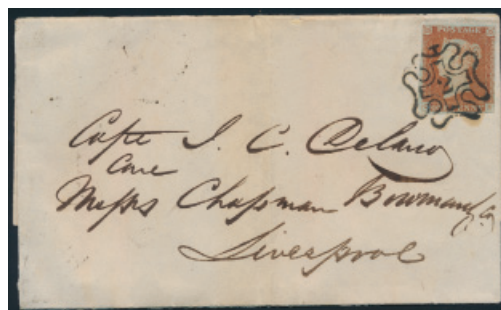 POSTAGE
Capt J. C. Delano
Care
Messrs Chapman Bowman & Co
Liverpool